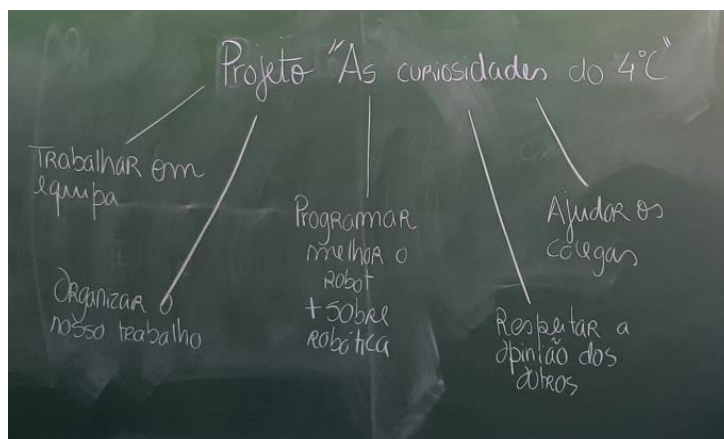 Projeto "As curiosidades do 4ºC"
Trabalhar em
equipa
Organizar o
nosso trabalho
Programar
melhor o
robot
+ sobre
robótica
Respeitar a
opinião dos
outros
Ajudar os
colegas